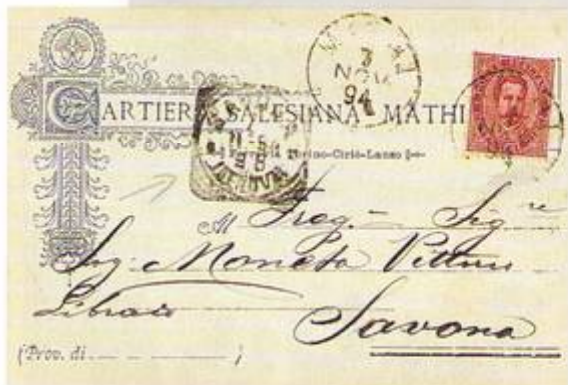 CARTIERA SALESIANA MATHI
Torino-Ciriè-Lanzo
7
NOV
94
Al Preg. Sig.re
Sig. Moneta Vittorio
Libraio
Savona
(Prov. di)